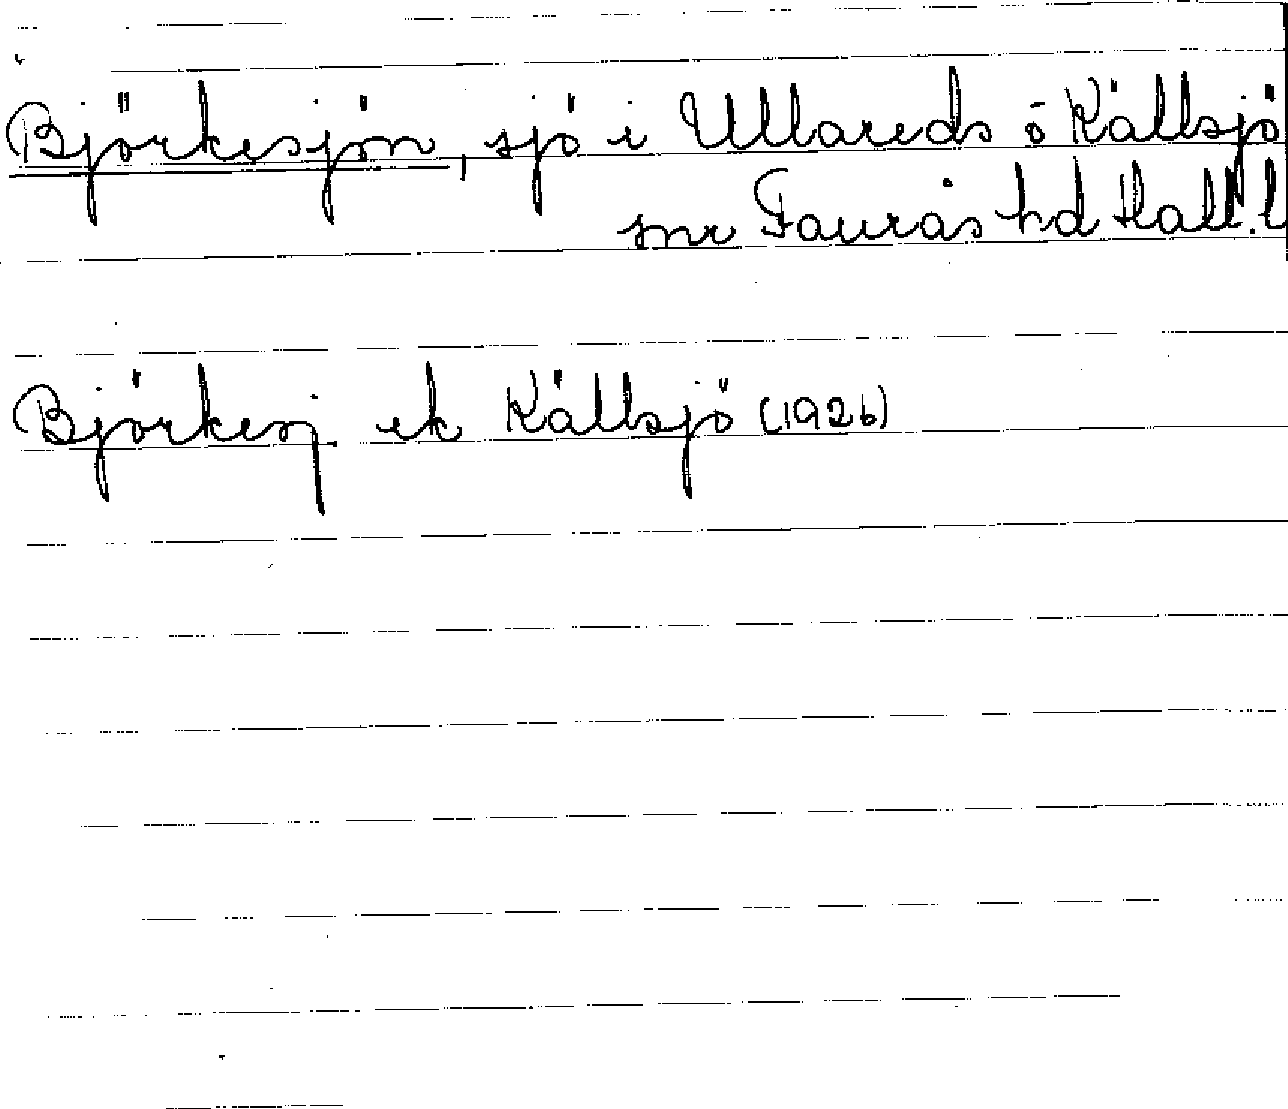 Björkesjön, sjö i Ullareds o Källsjö
snr Faurås hd Hall. l
Björkesj. ek Källsjö (1926)